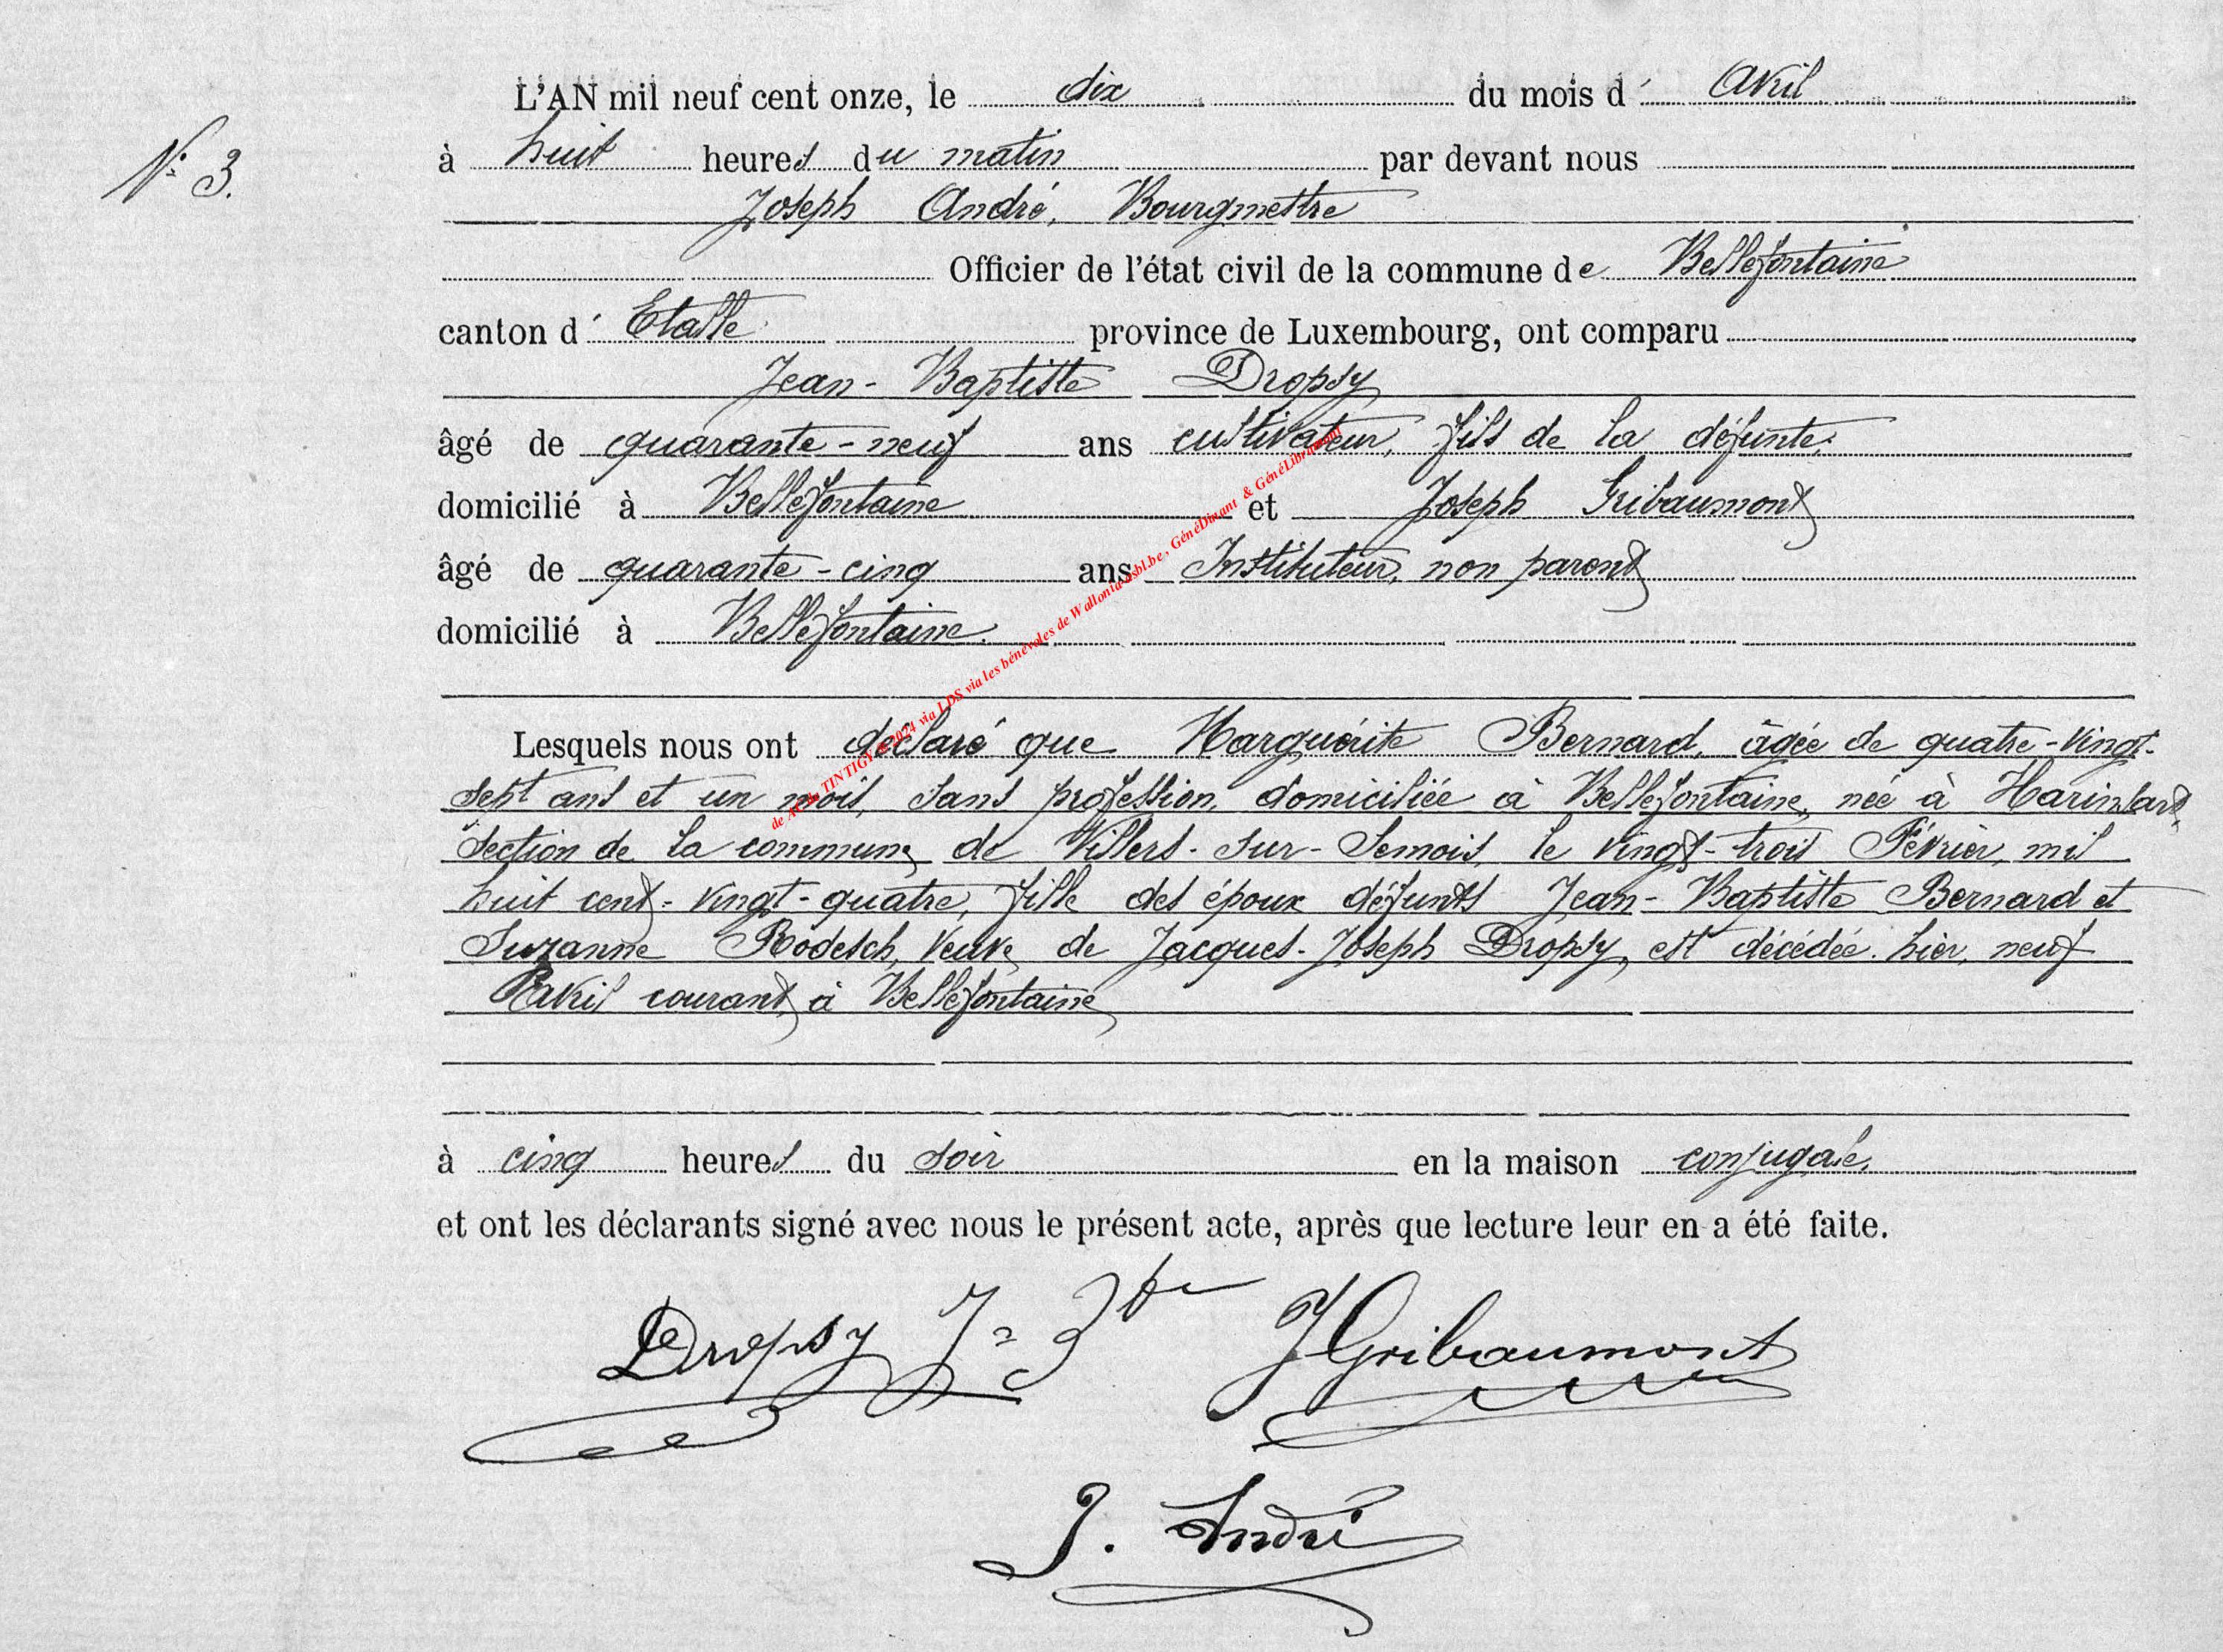 L'AN mil neuf cent onze, le dix du mois d' Avril
N° 3.
à huit heures du matin par devant nous
Joseph André, Bourgmestre
Officier de l'état civil de la commune de Bellefontaine
canton d' Etalle province de Luxembourg, ont comparu
Jean-Baptiste Dropsy
âgé de quarante-neuf ans cultivateur, fils de la défunte,
domicilié à Bellefontaine et Joseph Gribaumont
âgé de quarante-cinq ans Instituteur, non parent
domicilié à Bellefontaine.
de AC de TINTIGY © 2024 via LDS via les bénévoles de Wallonia-asbl.be, GénéDinant & GénéLibramont
Lesquels nous ont déclaré que Marguérite Bernard, âgée de quatre-vingt-
sept ans et un mois, sans profession, domiciliée à Bellefontaine, née à Harinsart,
section de la commune de Villers-sur-Semois, le vingt-trois Février, mil
huit cent-vingt-quatre, fille des époux défunts Jean-Baptiste Bernard et
Suzanne Rodesch, veuve de Jacques-Joseph Dropsy, est décédée hier, neuf
avril courant, à Bellefontaine
à cinq heures du soir en la maison conjugale,
et ont les déclarants signé avec nous le présent acte, après que lecture leur en a été faite.
Dropsy J=Bte JGribaumont
J. André